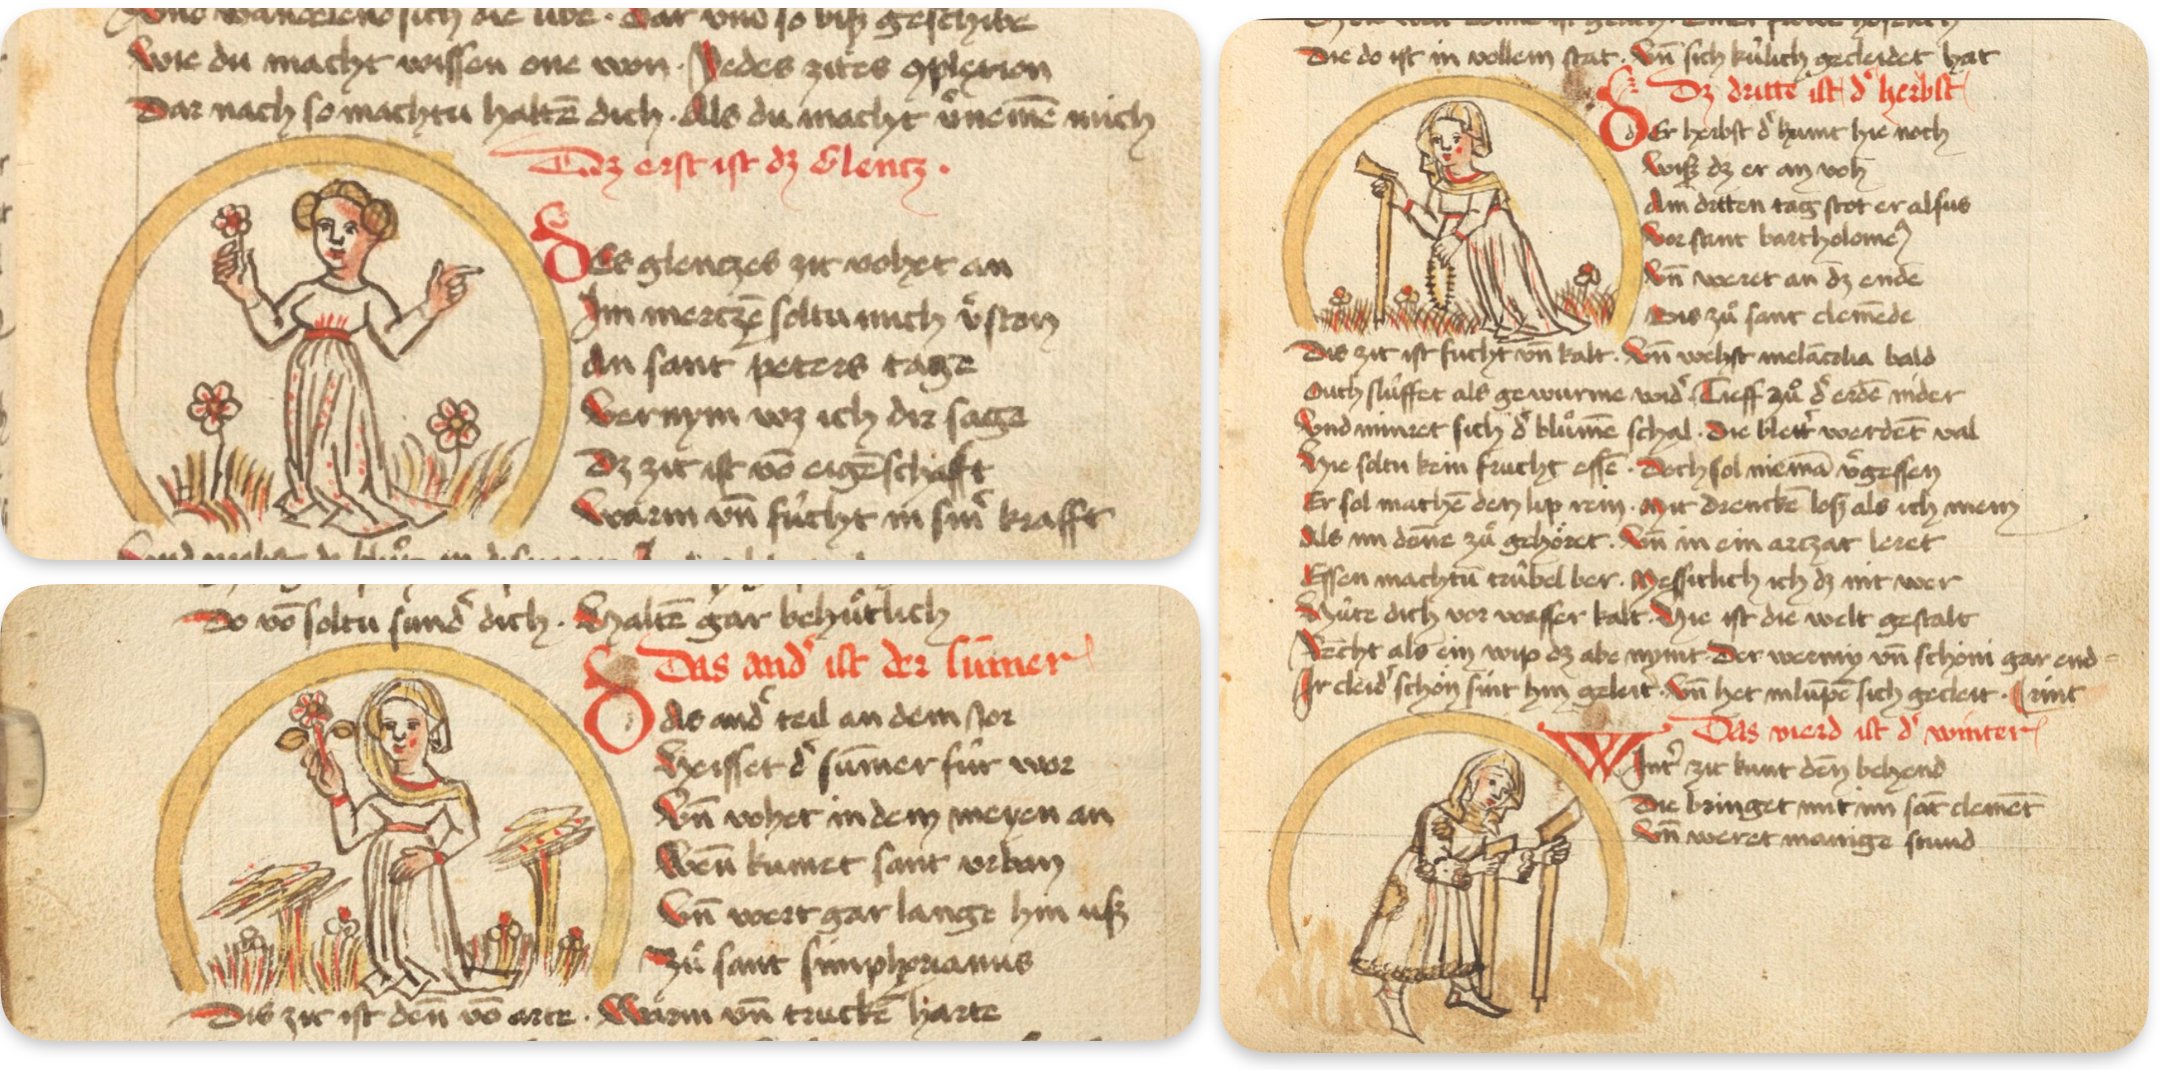 wie du macht wissen one won · Jedes zites 9plexion
Dar nach so machtu haltē dich · Als du macht v᷑nemē mich
Dz erst ist dz Glentz ·
Des glentzes zit vohet an
Im mertzē soltu mich v᷑stan
An sant peters tage
Vernym wz ich dir sage
Dz zit ist vō eigēschafft
Warm vn̄ fúcht in sinr᷑ krafft
Do vō soltu sund᷑ dich · Haltē gar behuͤtlich
Das and᷑ ist der sum̄er
Das and᷑ teil an dem Jor
Heisset d᷑ sum̄er fúr wor
Vn̄ vohet in dem meyen an
Wen̄ kumet sant vrban
Vn̄ wert gar lange hin uß
Zuͦ sant simphorianus
Dis zit ist den̄ vō arte · Warm vn̄ truckē harte
Die do ist in vollem stat · Vn̄ sich kúlich gecleidet hat
Dz dritte ist d᷑ herbst
Der herbst d᷑ kumt hie noch
wiß dz er an voh
Am dritten tag stot er alsus
Vor sant bartholome9
Vn̄ weret an dz ende
Bis zuͦ sant clemēde
Dis zit ist fucht vn̄ kalt · Vn̄ wehst melācolia bald
Ouch slúffet als gewurme wid᷑ · Tieff zuͦ d᷑ erdē nider
Vnd minret sich d᷑ bluͦmē schal · Die blett᷑ werdēt val
Hie soltu kein frucht essē · Doch sol niemā v᷑gessen
Er sol machē den lip rein · Mit drenckē loß als ich mein
Als im dēne zuͦ gehoͤret · Vn̄ in ein arczat leret
Essen machtu trúbel ber · Messiclich ich dz nit wer
Huͤte dich vor wasser kalt · Hie ist die welt gestalt
Recht als ein wip dz abe nymt · Der wenig vn̄ schoni gar end-
Ir cleid᷑ schon sint hin geleit · Vn̄ het in lúpē sich gecleit · (rint
Das vierd ist d᷑ winter
Wint᷑ zit kunt den behend
Die bringet mit im sāt clemēt
Vn̄ weret manige stund